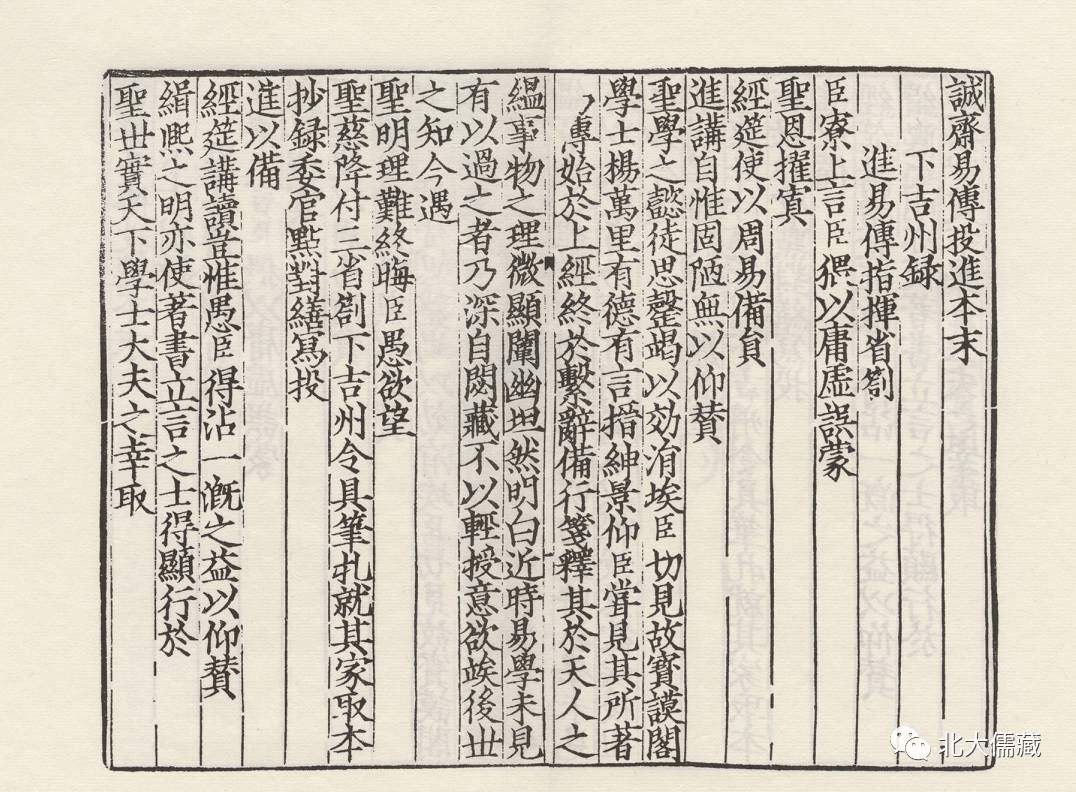 誠齋易傳投進本末
下吉州録
進易傳指揮省劄
臣寮上言臣猥以庸虛誤蒙
聖恩擢寘
經筵使以周易備貟
進講自惟固陋無以仰賛
聖學之懿徒思罄竭以効涓埃臣切見故寳謨閣
學士楊萬里有德有言搢紳景仰臣甞見其所著
傳始於上經終於繫辭備行箋釋其於天人之
緼事物之理微顯闡幽坦然明白近時易學未見
有以過之者乃深自閟藏不以輕授意欲竢後世
之知今遇
聖明理難終晦臣愚欲望
聖慈降付三省劄下吉州令具筆札就其家取本
抄録委官點對繕寫投
進以備
經筵講讀豈惟愚臣得沾一溉之益以仰賛
緝熈之明亦使著書立言之士得顯行於
聖世實天下學士大夫之幸取
北大儒藏